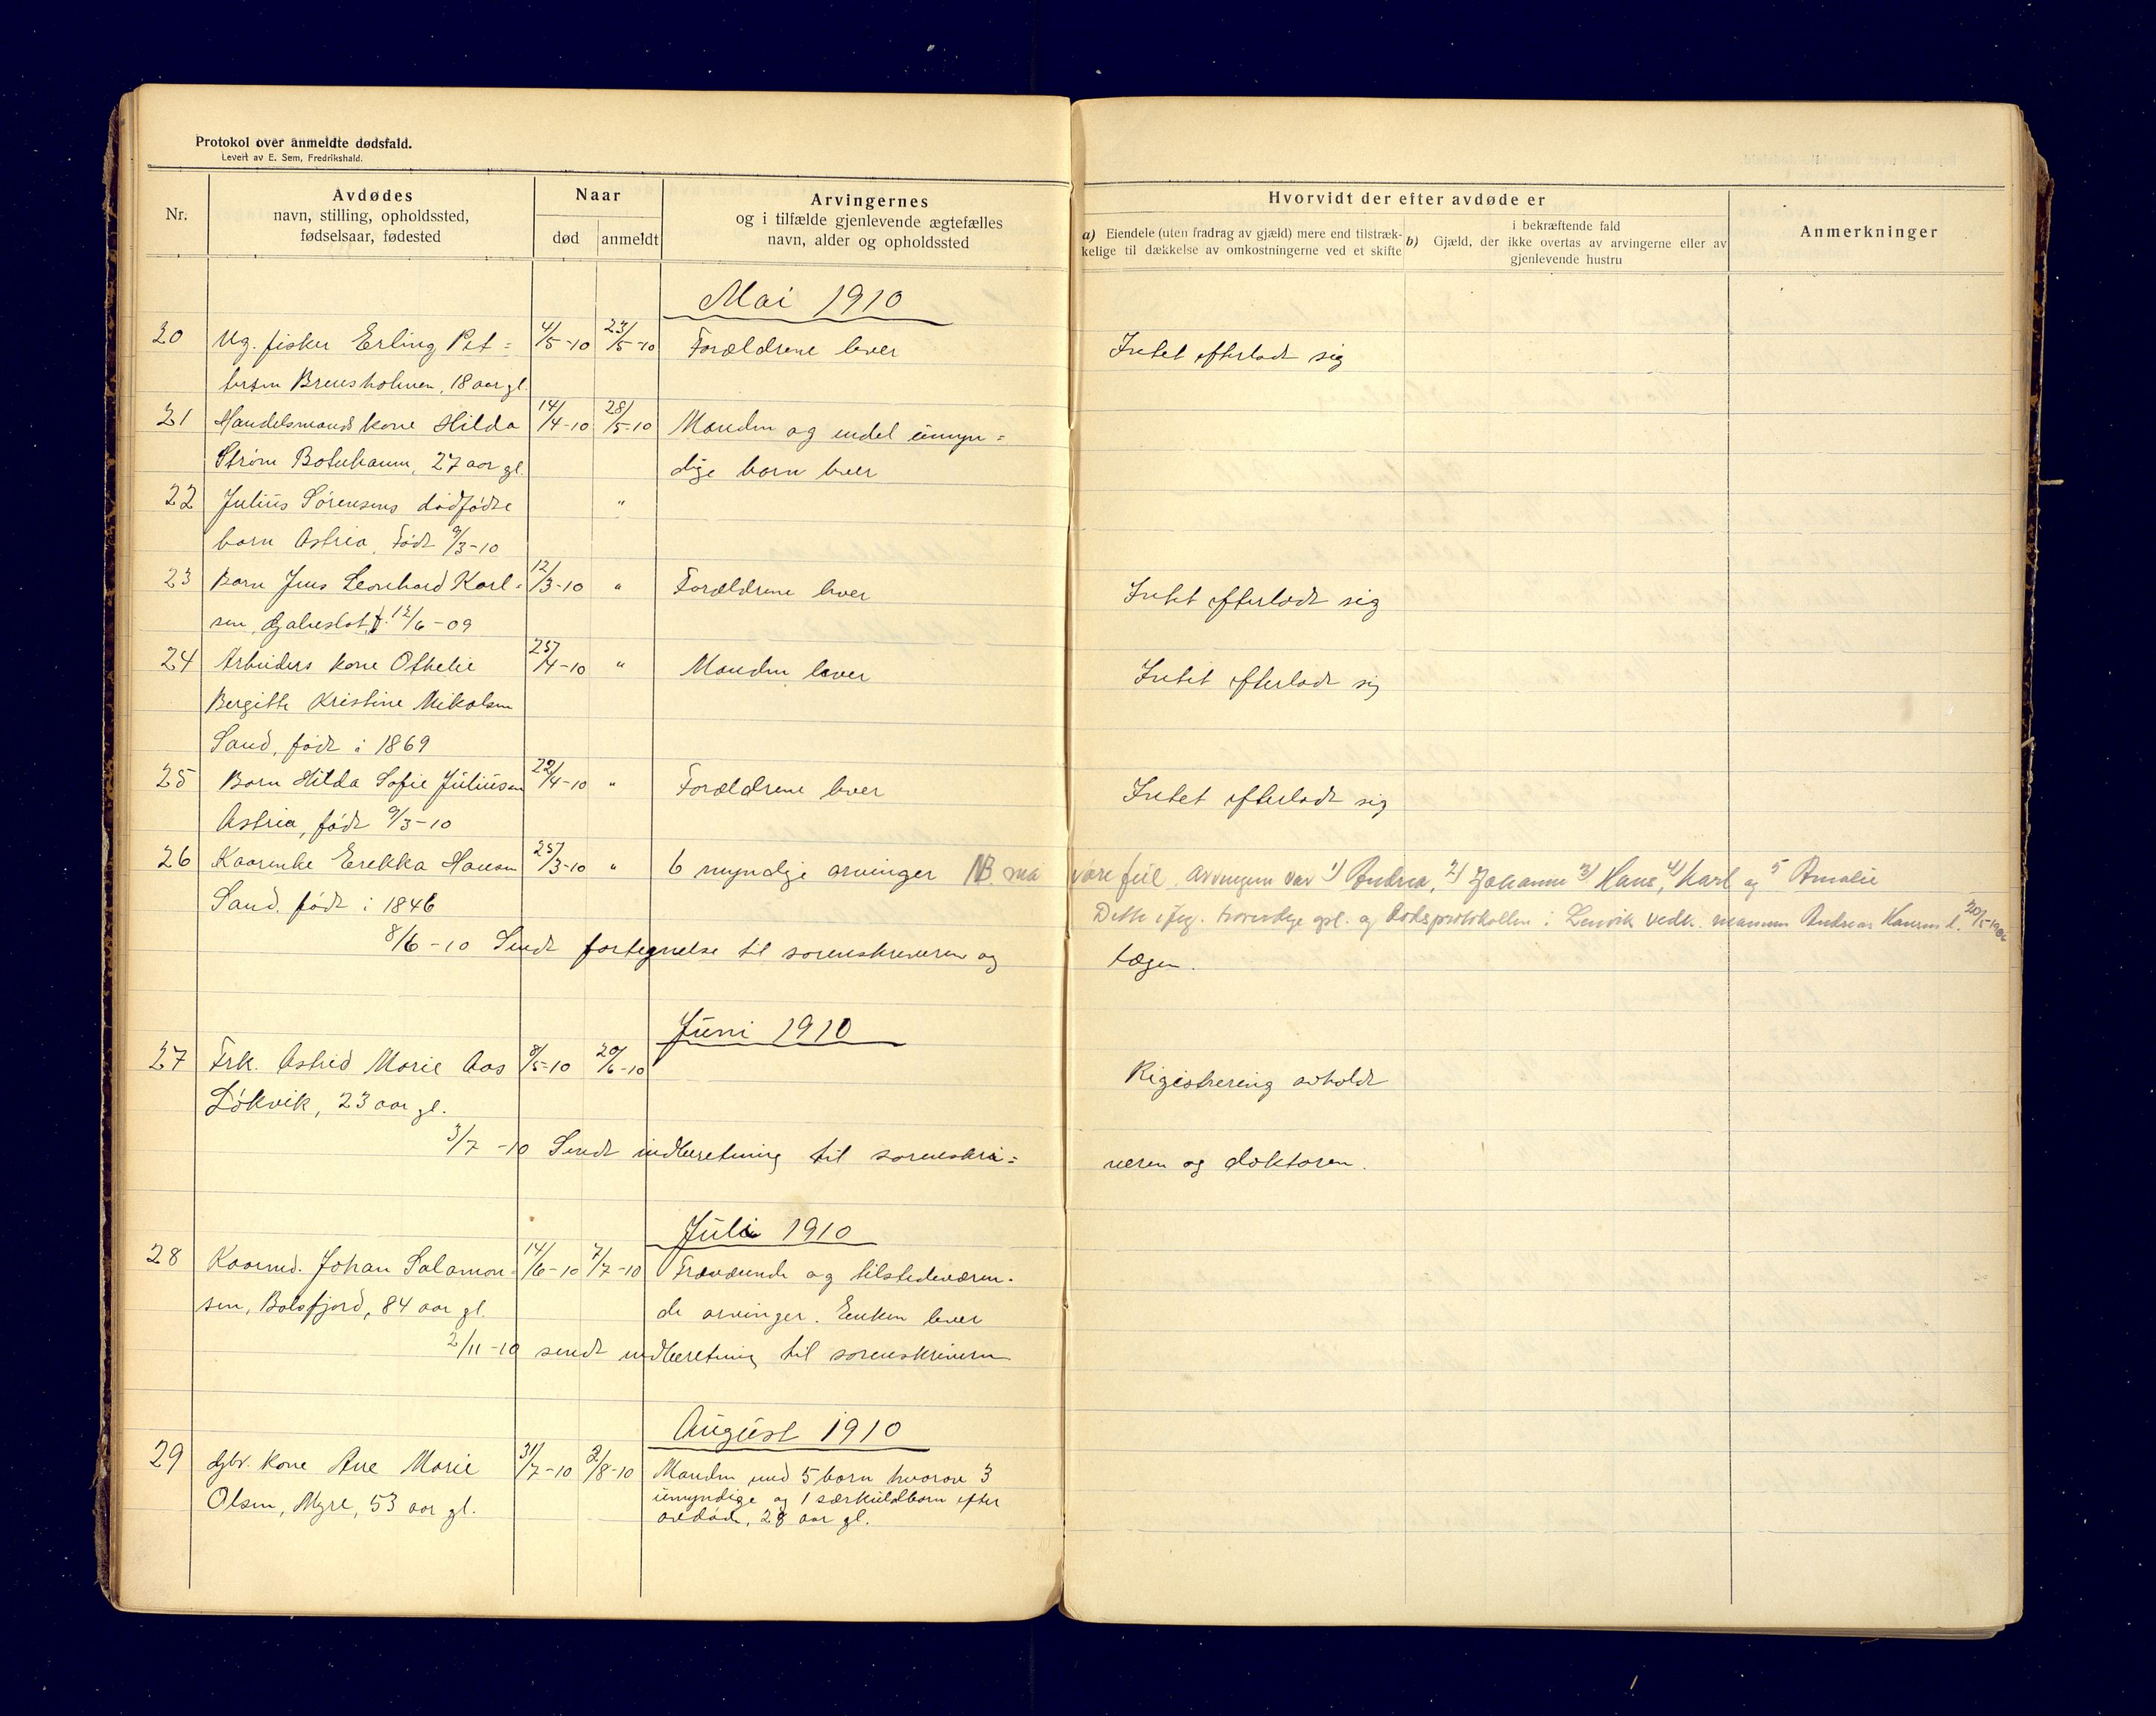 Protokol over anmeldte dødsfald.
Levert av E. Sem, Fredrikshald.
Nr.
Avdødes
navn, stilling, opholdssted,
fødselsaar, fødested
Naar
død
anmeldt
Arvingernes
og i tilfælde gjenlevende ægtefælles
navn, alder og opholdssted
Hvorvidt der efter avdøde er
a) Eiendele (uten fradrag av gjæld) mere end tilstræk-
kelige til dækkelse av omkostningerne ved et skifte
i bekræftende fald
b) Gjæld, der ikke overtas av arvingerne eller av
gjenlevende hustru
Anmerkninger
Mai 1910
20 Ug. fisker Erling Pet= 4/5-10 23/5-10 Forældrene lever Intet efterlodt sig
tersen Brensholmen, 18 aar gl.
21 Handelsmands kone Hilda 14/4-10 28/5-10 Manden og endel umyn=
Strøm Botnhamn, 27 aar gl. dige barn lever
22 Julius Sørensens dødfødte "
barn Astria, født 9/3-10
23 Barn Jens Leonhard Karl= 12/3-10 " Forældrene lever Intet efterlodt sig
sen, f. 12/6-09
24 Arbeiders kone Othelie 25/4-10 " Manden lever Intet efterlodt sig
Bergitte Kristine Mikalsen
Sand, født i 1869
25 Barn Hilda Sofie Juliusen 22/4-10 " Forældrene lever Intet efterlodt sig
Astria, født 9/3-10
26 Kaarenhe Erekka Hansen 25/3-10 " 6 myndige arvinger NB. må være feil. Arvingene var 1) Andrea, 2) Johanne 3) Hans, 4) Karl og 5 Amalie
Sand, født i 1846 Dette i flg. troverdige opl. og dødsprotokollen i Lenvik vedk. mannen Andreas Hansen d. 20/5-1906
8/6-10 Sendt fortegnelse til sorenskriveren og lægen.
Juni 1910
27 Frk. Astrid Marie Aas 8/5-10 20/6-10 Registrering avholdt
Løkvik, 23 aar gl.
3/7-10 Sendt indberetning til sorenskri= veren og doktoren.
Juli 1910
28 Kaarmd. Johan Salamon= 14/6-10 7/7-10 Fraværende og tilstedeværen-
sen, Balsfjord, 84 aar gl. de arvinger. Enken lever
2/11-10 sendt indberetning til sorenskriveren
August 1910
29 Gbr. kone Ane Marie 31/7-10 2/8-10 Manden med 5 barn hvorav 3
Olsen, Myre, 53 aar gl. umyndige og 1 særkuldbarn efter
avdøde, 28 aar gl.